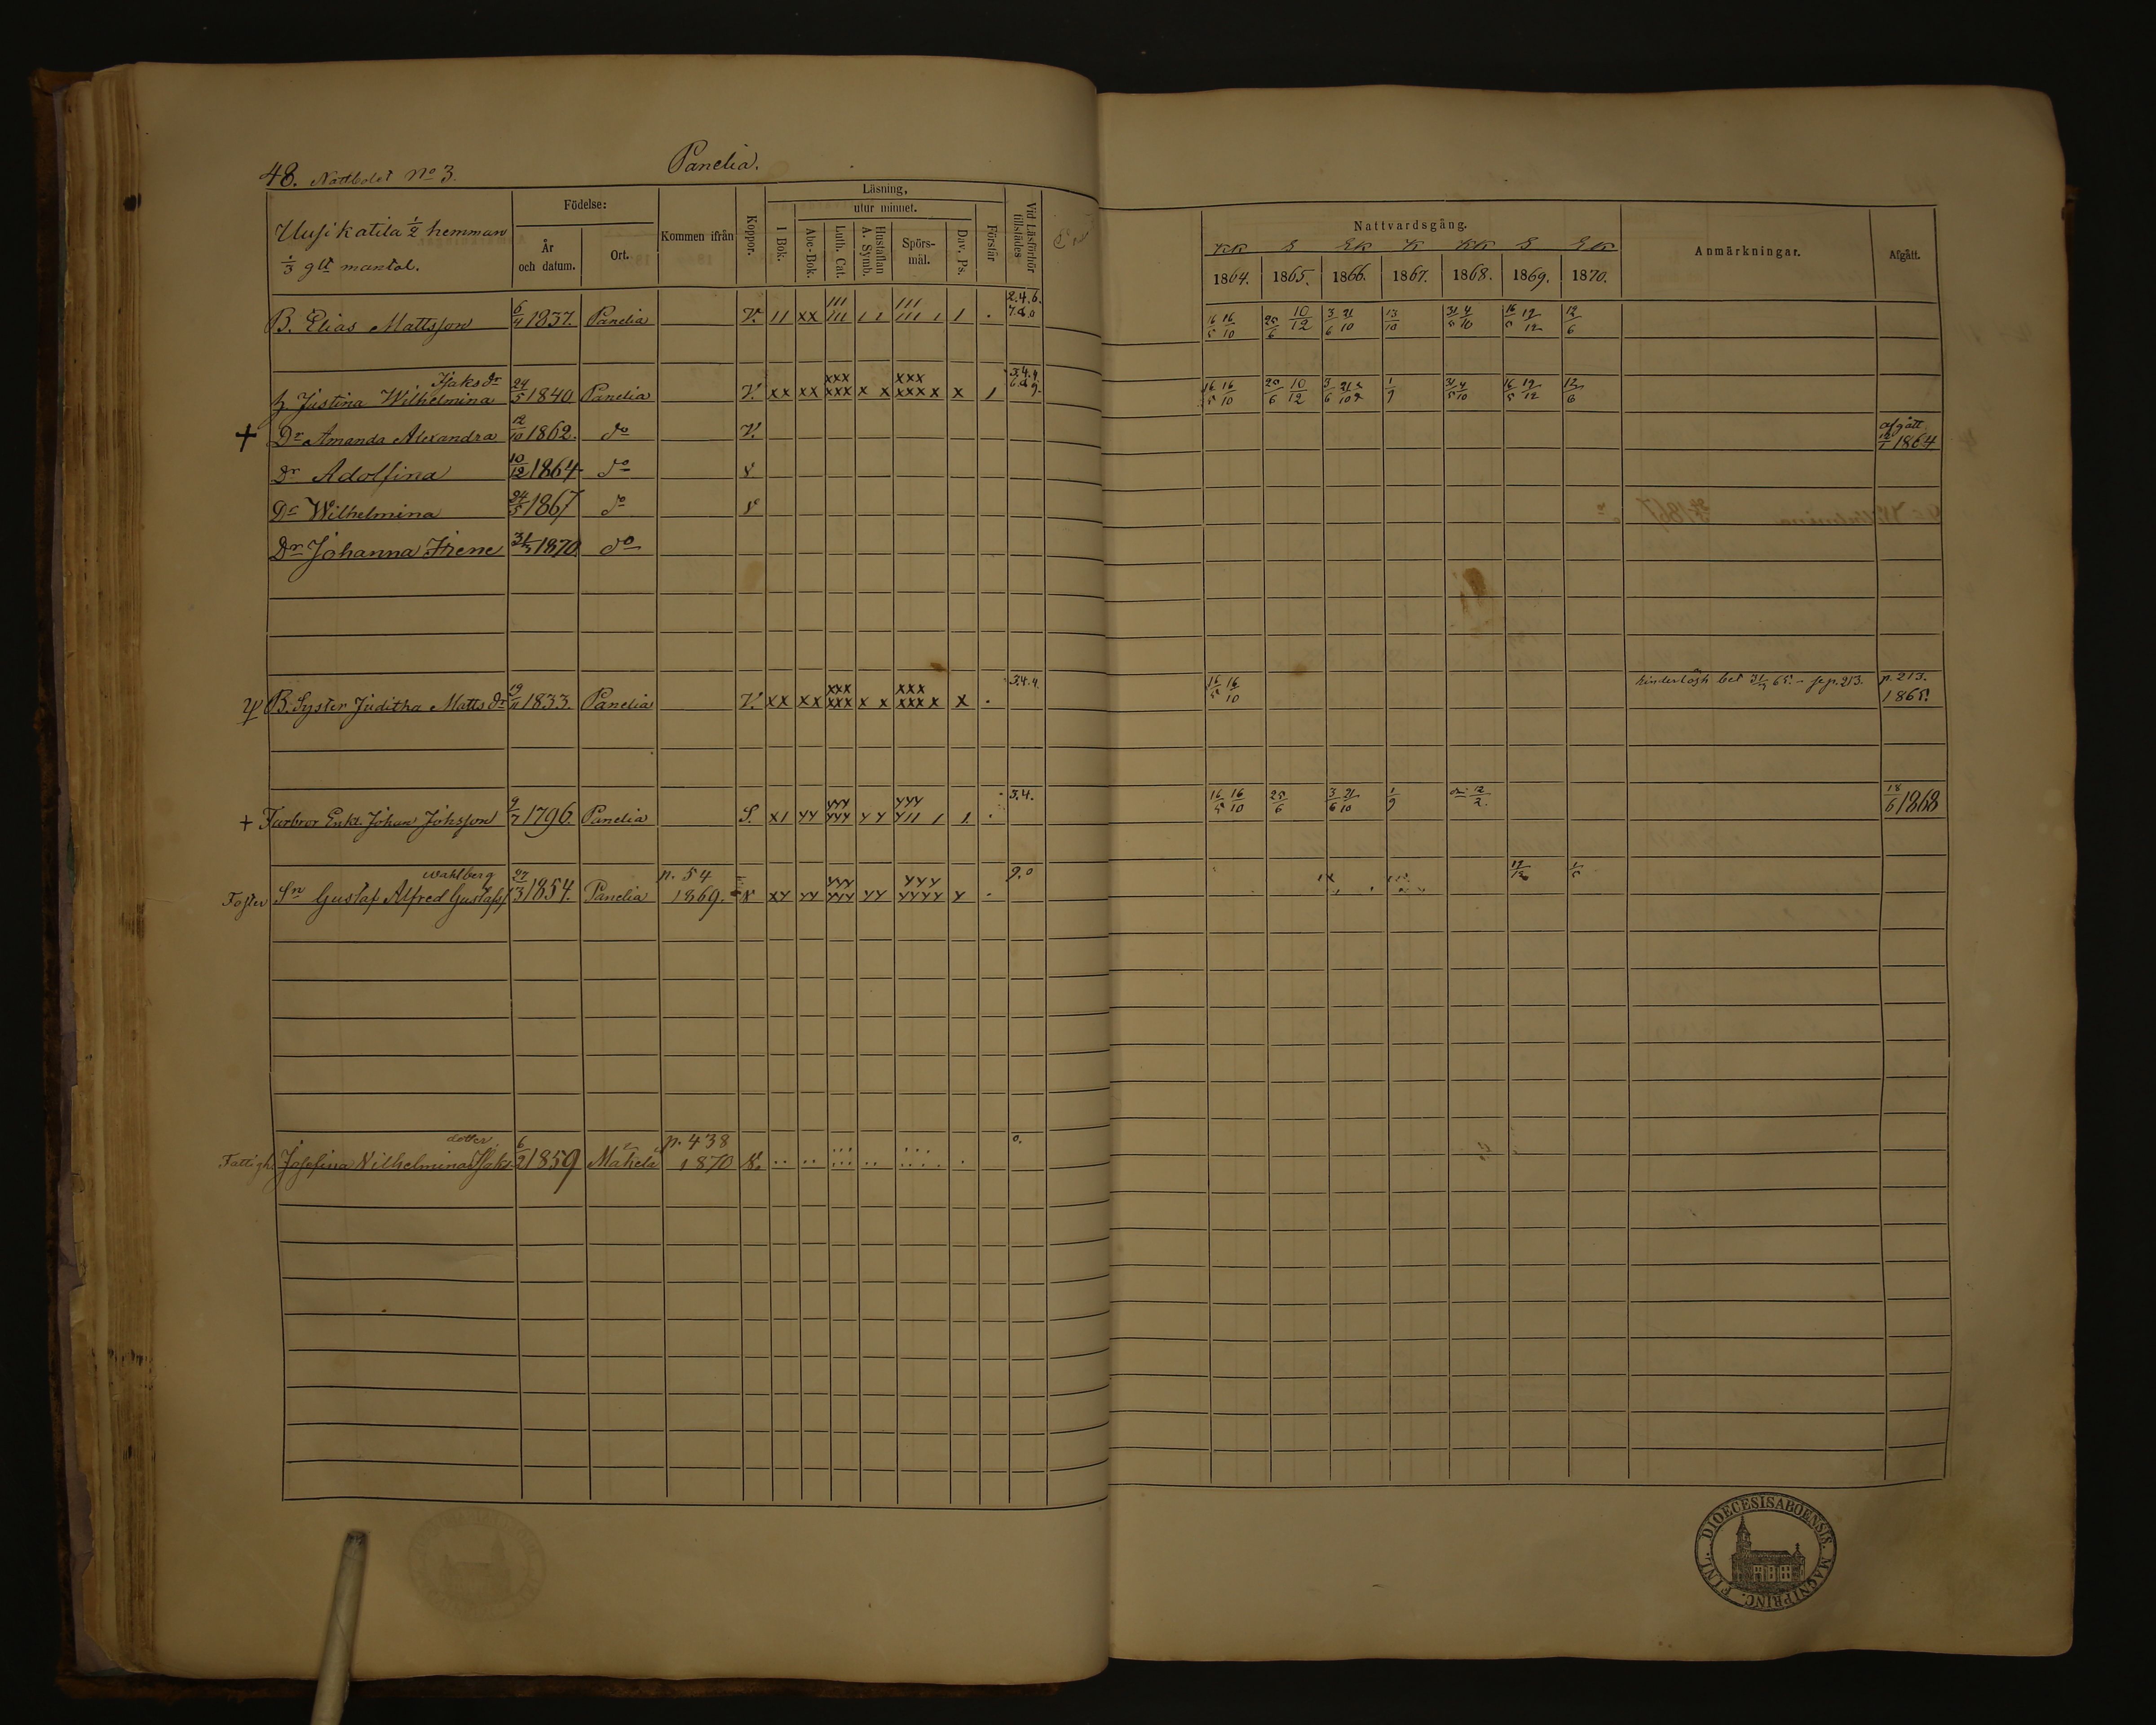 48. Nattbolet No 3. Panelia.
Uusikatila 1/2 hemman
1/3 glt mantal.
Födelse:
År och datum.
Ort.
Kommen ifrån
Koppor.
Läsning,
utur minnet.
I Bok.
Abc-Bok.
Luth. Cat.
Hustaflan A. Symb.
Spörsmål.
Dav. Ps.
Förstår
Vid Läsförhör tillstädes
Nattvardsgång.
KK S EK K KK S EK
1864. 1865. 1866. 1867. 1868. 1869. 1870.
Anmärkningar.
Afgått.
B. Elias Mattsson 6/4 1837. Panelia V. 11 xx 111 111 1 1 111 111 1 1 . 2.4.6. 7.8.0 16/5 16/10 25/6 10/12 3/6 21/10 13/10 31/5 4/10 16/5 19/12 12/6
Isaks dr
h. Justina Wilhelmina 24/5 1840 Panelia V. xx xx xxx xxx x x xxx xxx x x 1 16/5 16/10 25/6 10/12 3/6 1/9 31/5 4/10 16/5 19/12 12/6
+ Dr Amanda Alexandra 12/10 1862. do V. afgått 1864
Dr Adolfina 10/12 1864 do
Dr Wilhelmina 24/5 1867 do
Dr Johanna Irene 1870 do
B. Syster Juditha Matts dr 19/11 1833. Panelia V. xx xx xxx xxx x x xxx xxx x x . 3.4.4. 16/5 16/10 p. 213. 1865.
+ Farbror Enkl. Johan Johsson 9/7 1796. Panelia S. x1 yy yyy yyy y y yyy y11 1 1. . 3.4. 16/5 16/10 25/6 3/6 21/10 1/9 12/2. 18/6 1868
Wahlberg
Foster Sn Gustaf Alfred Gustafss 27/3 1854. Panelia p. 54 1869. xy yy yyy yyy yy yyy yyyy y . 9.0 19/12
dotter
Fattigh. Josefina Wilhelmina Isaks 6/2 1859 Mäkelä p. 438 1870 0.
FINL. DIOECESIS ABOENSIS. MAGNI PRINC.